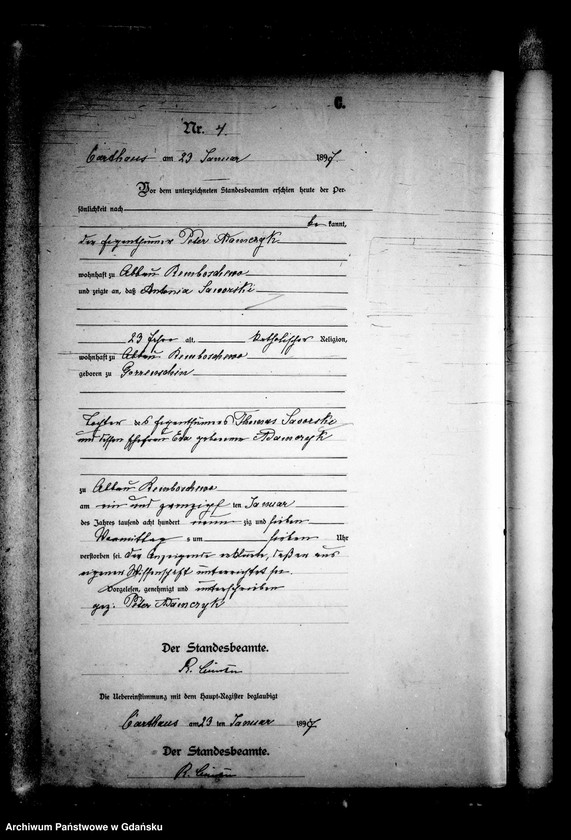 C.
Nr. 4
Carthaus am 23 Januar 1897
Vor dem unterzeichneten Standesbeamten erschien heute der Per-
sönlichkeit nach
be kannt,
der Eigenthümer Peter Adamczyk
wohnhaft zu Abbau Remboschewo
und zeigte an, daß Antonia Jaworski
23 Jahre alt, katholischer Religion,
wohnhaft zu Abbau Remboschewo
geboren zu Gorrenschin
Tochter des Eigenthümers Thomas
und dessen Ehefrau Eva geborene Adamczyk
zu Abbau Remboschewo
am ein und zwanzigsten Januar
des Jahres tausend acht hundert neun zig und sieben
Vormittags um sieben Uhr
verstorben sei. Der Anzeigende erklärte, daß er aus
eigener Wissenschaft unterrichtet sei.
Vorgelesen, genehmigt und unterschrieben
gez: Peter Adamczyk
Der Standesbeamte.
R.
Die Uebereinstimmung mit dem Haupt-Register beglaubigt
Carthaus am 23 ten Januar 1897
Der Standesbeamte.
R.
Archiwum Państwowe w Gdańsku